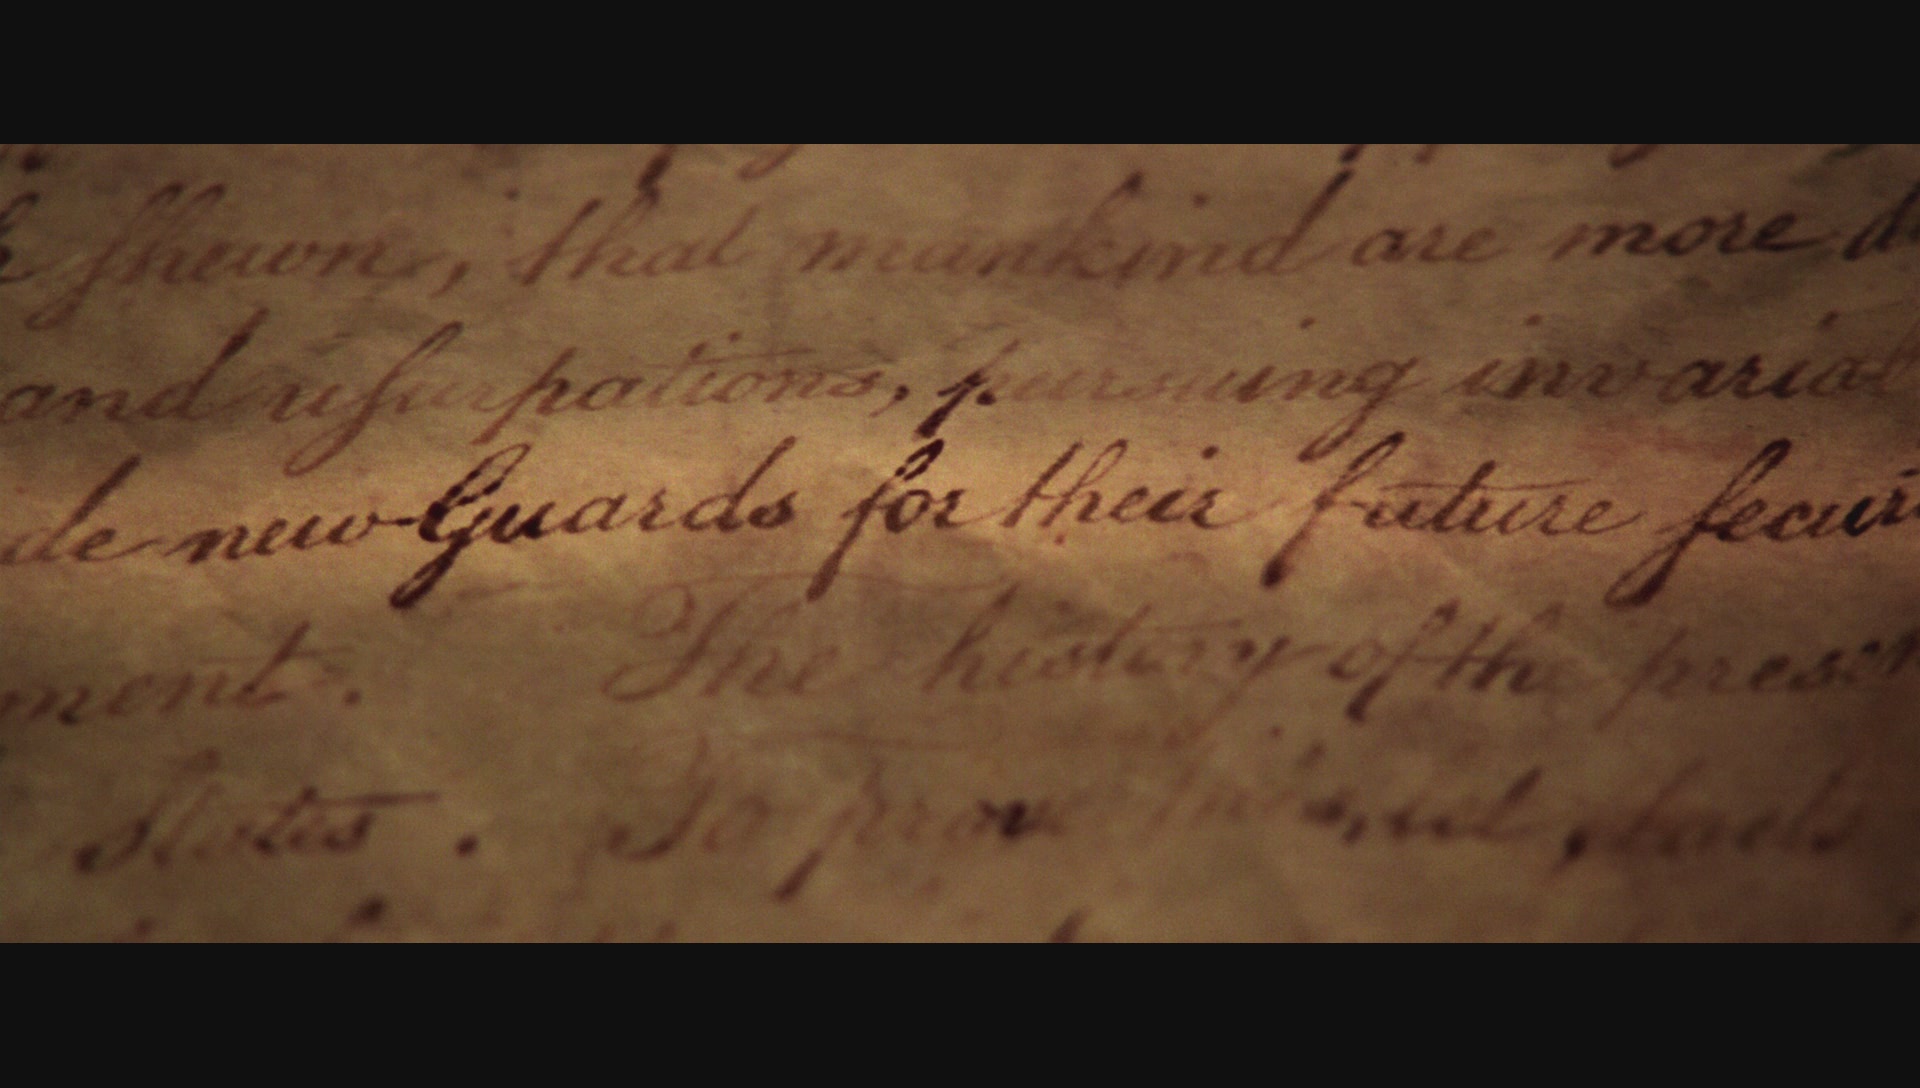 h shewn, that mankind are more d
and usurpations, pursuing invariab
de new Guards for their future secur
ment. The history of the presen
States. To prove